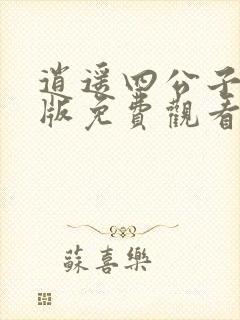 逍遥四公子
版免費觀看
蘇喜樂